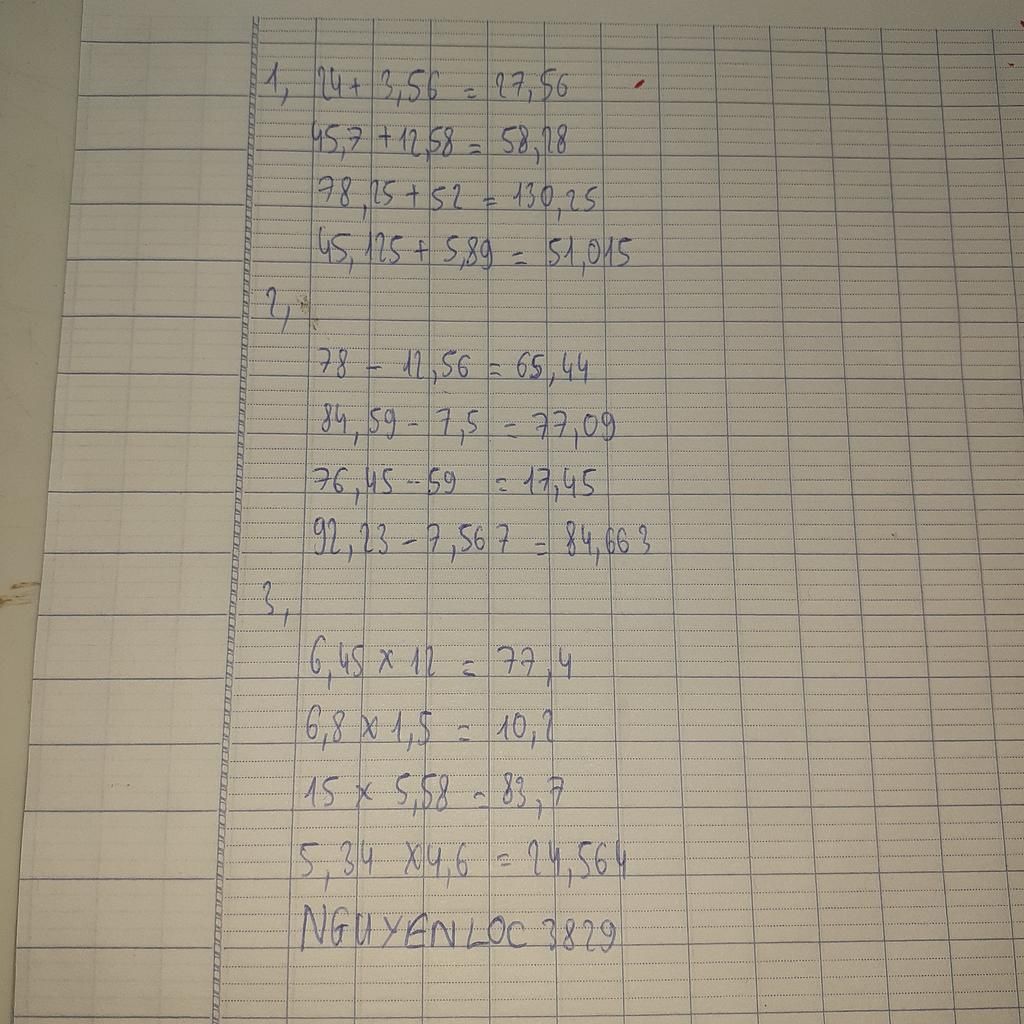 1, 24 + 3,56 = 27,56
45,7 + 12,58 = 58,28
78,25 + 52 = 130,25
45,125 + 5,89 = 51,015
2,
78 - 12,56 = 65,44
84,59 - 7,5 = 77,09
76,45 - 59 = 17,45
92,23 - 7,567 = 84,663
3,
6,45 x 12 = 77,4
6,8 x 1,5 = 10,2
15 x 5,58 = 83,7
5,34 x 4,6 = 24,564
NGUYEN LOC 3829